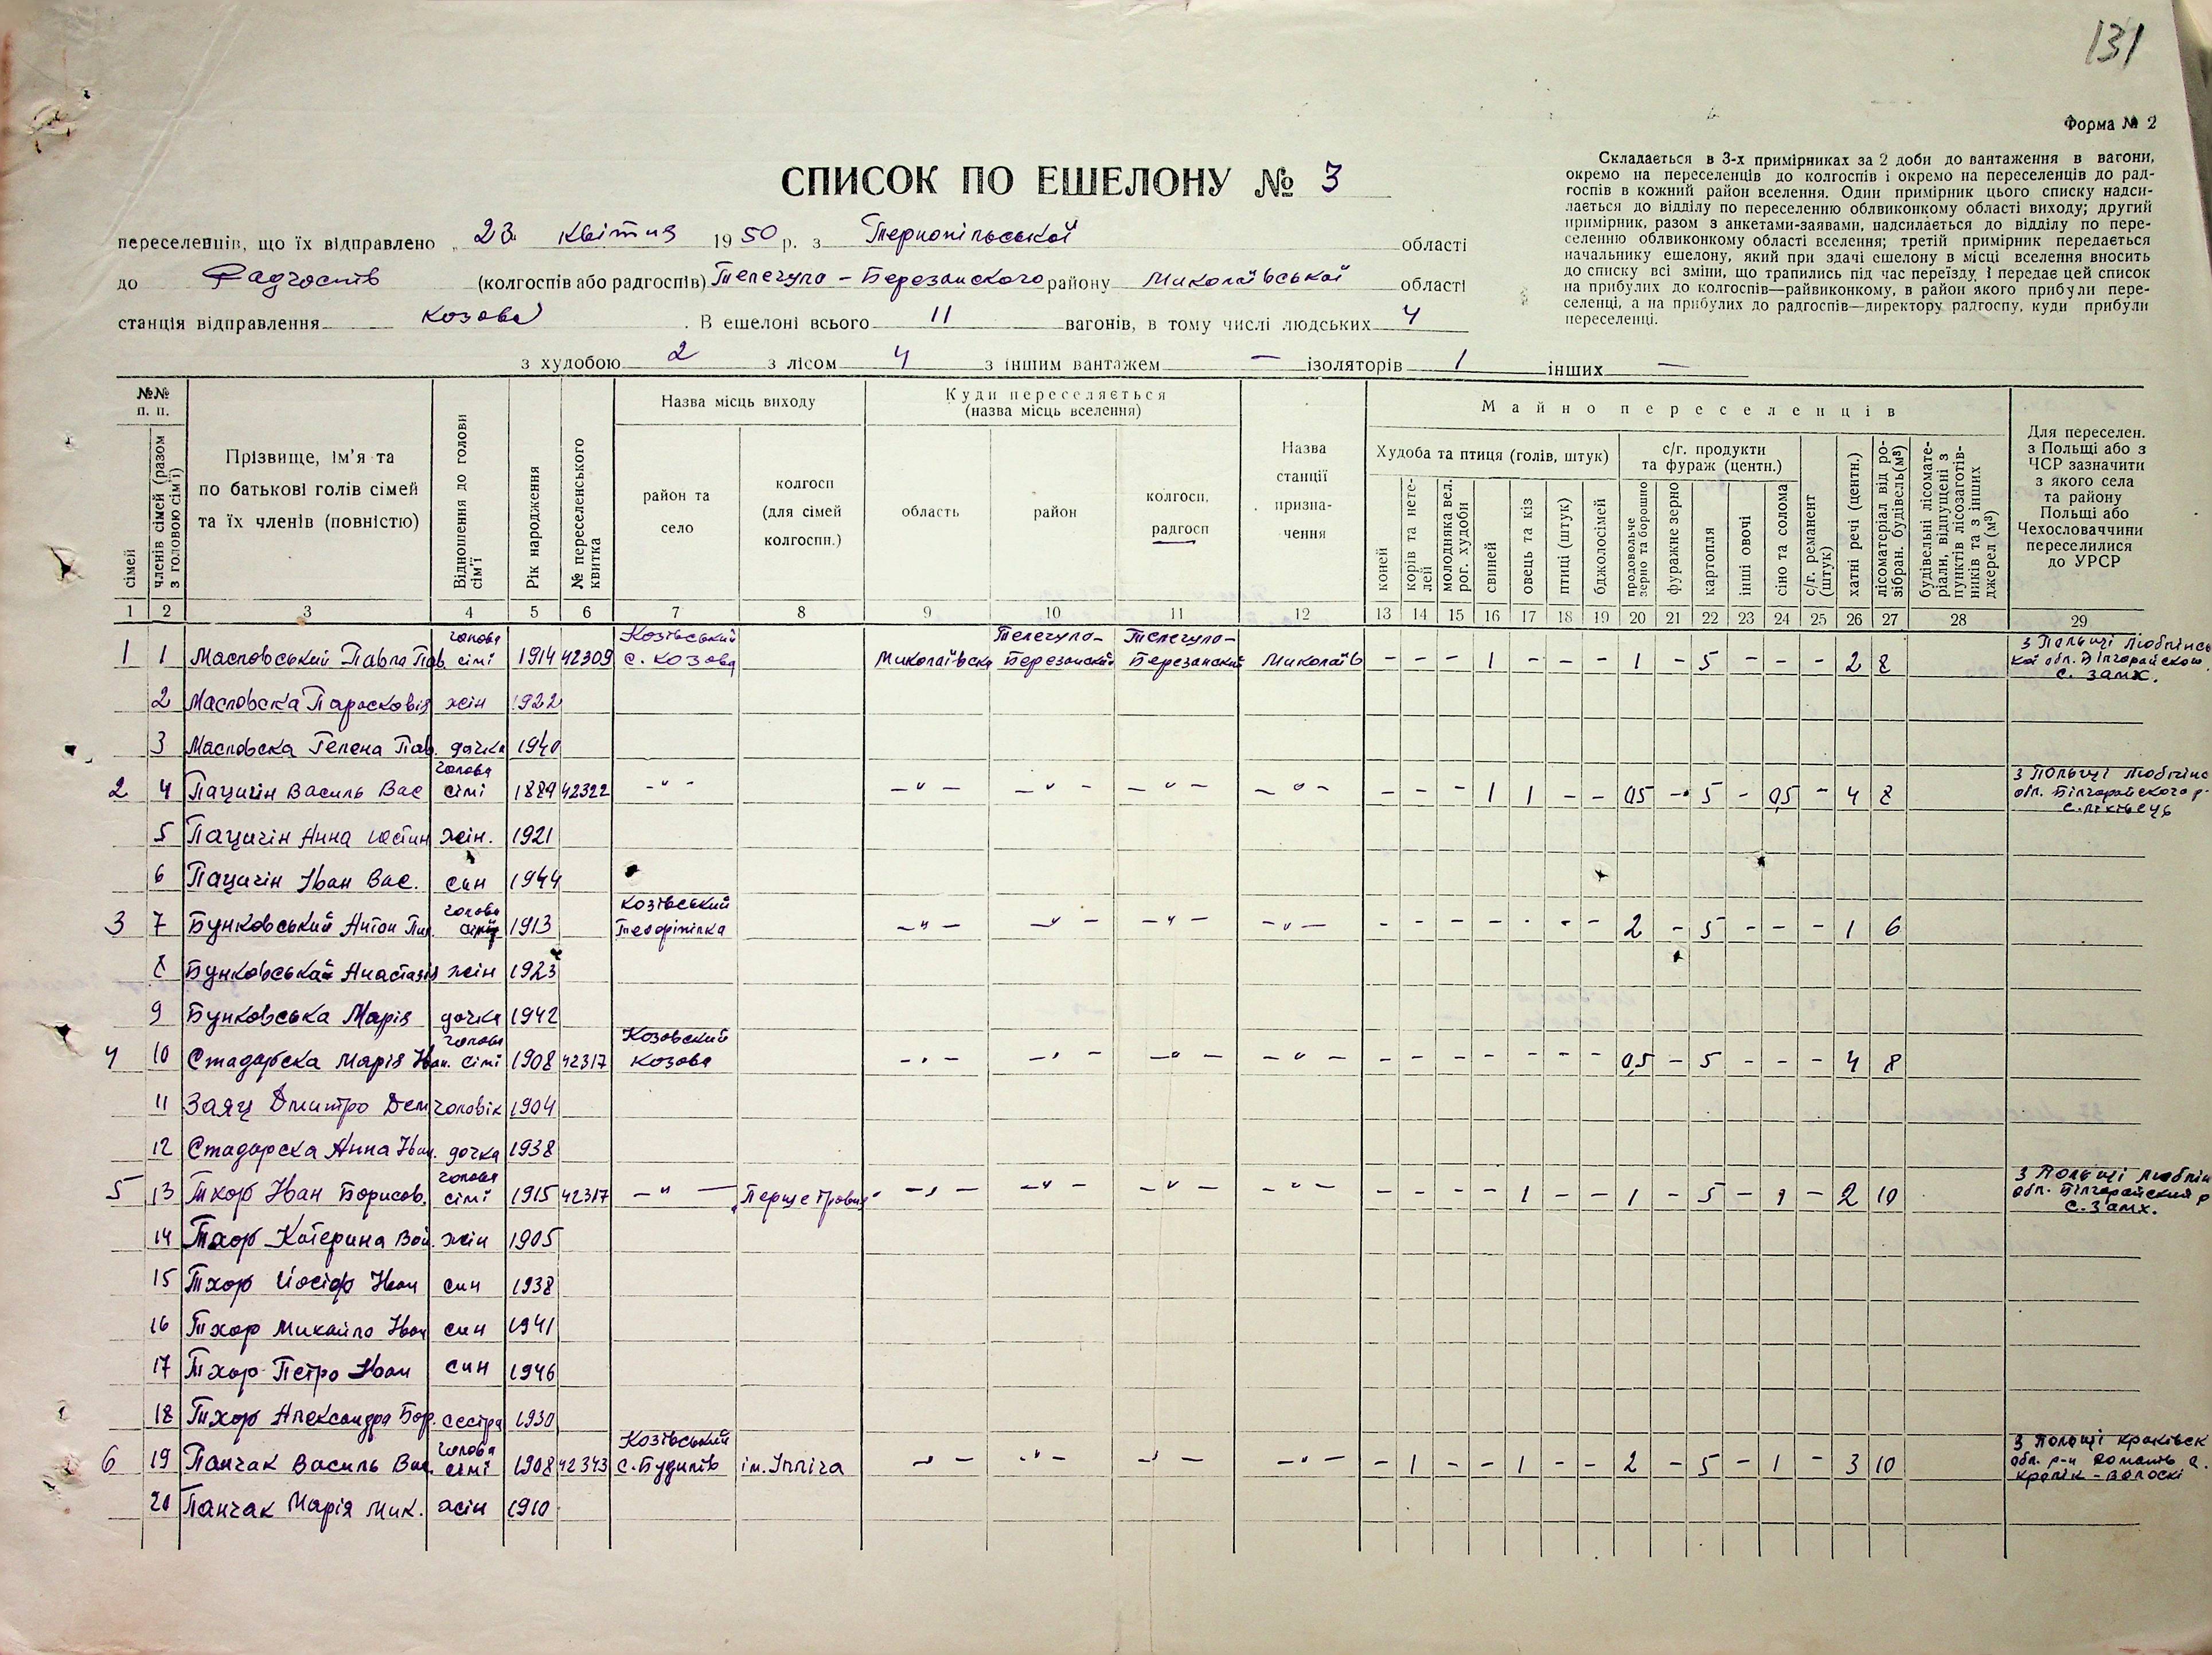 131
Форма № 2
СПИСОК ПО ЕШЕЛОНУ № 3
Складається в 3-х примірниках за 2 доби до вантаження в вагони,
окремо на переселенців до колгоспів і окремо на переселенців до рад-
госпів в кожний район вселення. Один примірник цього списку надси-
лається до відділу по переселенню облвиконкому області виходу; другий
примірник, разом з анкетами-заявами, надсилається до відділу по пере-
селенню облвиконкому області вселення; третій примірник передається
начальнику ешелону, який при здачі ешелону в місці вселення вносить
до списку всі зміни, що трапились під час переїзду і передає цей список
на прибулих до колгоспів—райвиконкому, в район якого прибули пере-
селенці, а на прибулих до радгоспів—директору радгоспу, куди прибули
переселенці.
переселенців, що їх відправлено 23 квітня 1950 р. з Тернопільської області
до Радгоспів (колгоспів або радгоспів) Телегуло-Березанского району Миколаївської області
станція відправлення Козова. В ешелоні всього 11 вагонів, в тому числі людських 4
з худобою 2 з лісом 4 з іншим вантажем — ізоляторів 1 інших —
№№ п. п.
сімей
членів сімей (разом з головою сім'ї)
Прізвище, ім'я та
по батькові голів сімей
та їх членів (повністю)
Відношення до голови сім'ї
Рік народження
№ переселенського квитка
Назва місць виходу
район та село
колгосп
(для сімей
колгоспн.)
Куди переселяється
(назва місць вселення)
область
район
колгосп,
радгосп
Назва
станції
призна-
чення
Майно переселенців
Худоба та птиця (голів, штук)
коней
корів та нете-
лей
молодняка вел.
рог. худоби
свиней
овець та кіз
птиці (штук)
бджолосімей
с/г. продукти
та фураж (центн.)
продовольче
зерно та борошно
фуражне зерно
картопля
інші овочі
сіно та солома
с/г. реманент
(штук)
хатні речі (центн.)
лісоматеріал від ро-
зібран. будівель (м³)
будівельні лісомате-
ріали, відпущені з
пунктів лісозаготів-
ників та з інших
джерел (м³)
Для переселен.
з Польщі або з
ЧСР зазначити
з якого села
та району
Польщі або
Чехословаччини
переселилися
до УРСР
1 2 3 4 5 6 7 8 9 10 11 12 13 14 15 16 17 18 19 20 21 22 23 24 25 26 27 28 29
1 1 Масловський Павло Пав. голова сімї 1914 42309 Козівський с. Козова Миколаївска Телегуло-Березанский Телегуло-Березанский Миколаїв - - - 1 - - - 1 - 5 - - - 2 8 З Польщі Люблінсь кої обл. Білгорайского с. Замх.
2 Масловска Парасковія жін 1922
3 Масловска Гелена Пав. дочка 1940
2 4 Пацигін Василь Вас голова сімї 1889 42322 -"- -"- -"- -"- -"- - - - 1 1 - - 0,5 - 5 - 0,5 - 4 8 З Польщі Люблінс обл. Білгорайского р-
5 Пацигін Анна Юстин жін. 1921
6 Пацигін Іван Вас. син 1944
3 7 Бунковський Антон Пил. голова 1913 Козівський Теофіпілка -"- -"- -"- -"- - - - - - - - 2 - 5 - - - 1 6
8 Бунковська Анастазія жін 1923
9 Бунковська Марія дочка 1942
4 10 Стадарска Марія Іван. голова сімї 1908 42317 Козовский Козова -"- -"- -"- -"- - - - - - - - 0,5 - 5 - - - 4 8
11 Заяц Дмитро Дем чоловік 1904
12 Стадарска Анна Іван. дочка 1938
5 13 Тхор Іван Борисов. голова сімї 1915 42317 -"- Перше Травня -"- -"- -"- -"- - - - - 1 - - 1 - 5 - 1 - 2 10 З Польщі Люблін обл. Білгорайский р с. Замх.
14 Тхор Катерина Вой. жін 1905
15 Тхор Йосіф Іван син 1938
16 Тхор Михайло Іван син 1941
17 Тхор Петро Іван син 1946
18 Тхор Александра Бор. сестра 1930
6 19 Панчак Василь Вас. голова сімї 1908 42343 Козівський с. Будилів ім. Ілліча -"- -"- -"- -"- - 1 - - 1 - - 2 - 5 - 1 - 3 10 З Польщі Краківск обл. р-н
20 Панчак Марія Мик. жін 1910